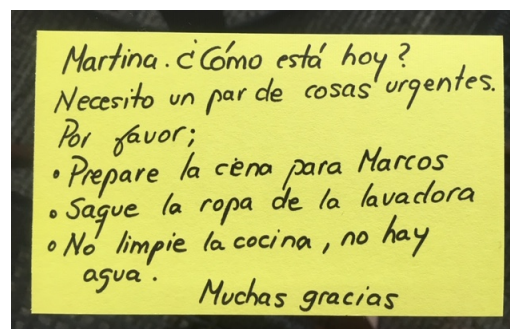 Martina. ¿Cómo está hoy?
Necesito un par de cosas urgentes.
Por favor;
• Prepare la cena para Marcos
• Saque la ropa de la lavadora
• No limpie la cocina, no hay
agua.
Muchas gracias